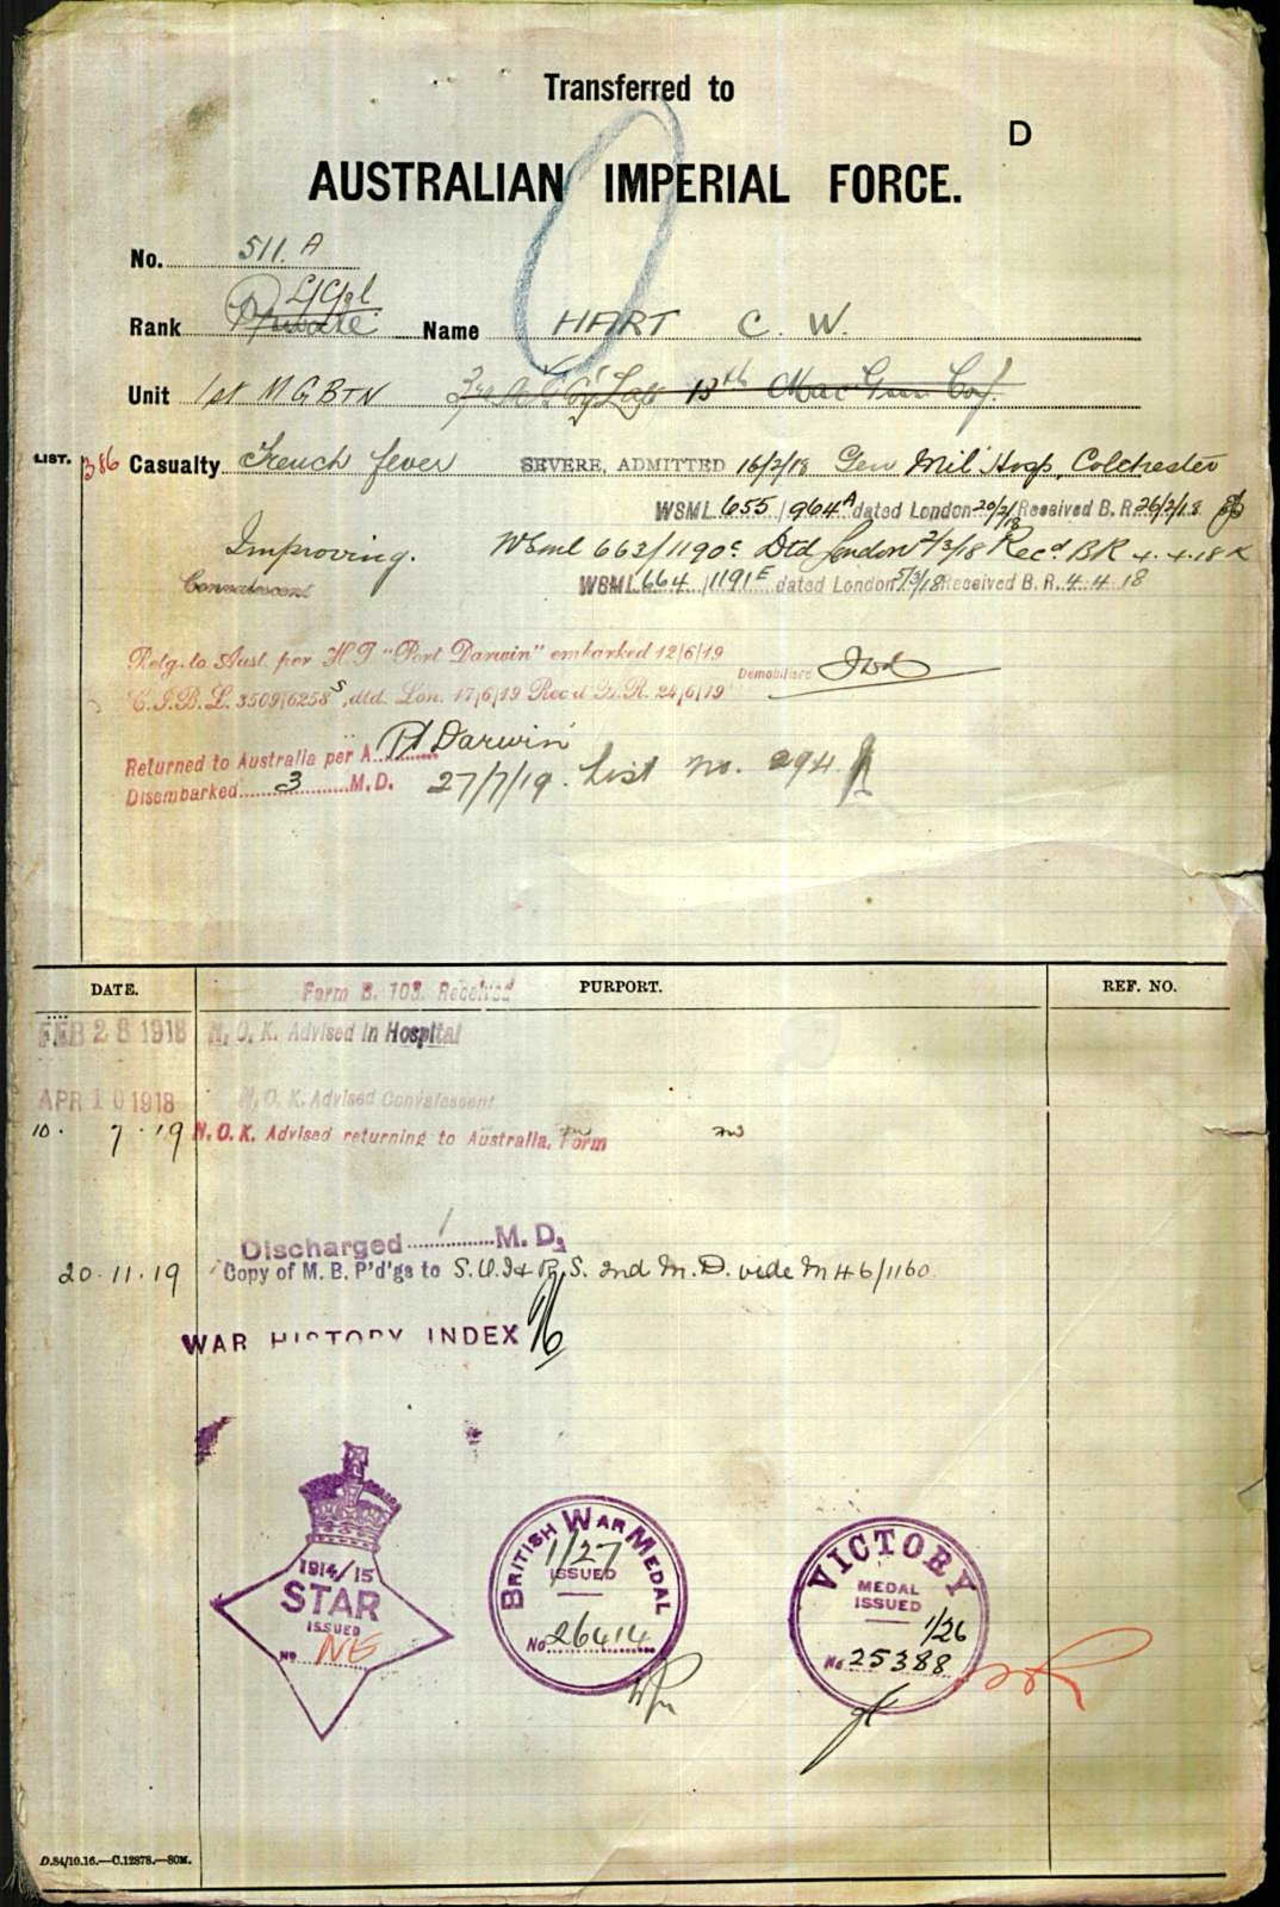 Transferred to
D
AUSTRALIAN IMPERIAL FORCE.
No. 511. A
L/Cpl
Rank Private Name HART C. W.
Unit 1st M G BTN 13th Mac Gun Coy.
LIST. 386 Casualty Trench fever SEVERE, ADMITTED 16/2/18 Gen Mil Hosp, Colchester
WSML 655 / 964 A dated London 20/2/18 Received B. R. 26/2/18
Improving. WSml 663/1190 Dtd London 2/3/18 Recd BR 4.4.18
Convalescent WSML 664 / 1191 E dated London 5/3/18 Received B. R. 4.4.18
Retg. to Aust. per H.T "Port Darwin" embarked 12/6/19
Demobilised
C.I.B.L. 3509/6258 S, dtd. Lon. 17/6/19 Recd B.R. 24/6/19
Returned to Australia per A. Pt Darwin
Disembarked 3 M.D. 27/7/19. List no. 294
DATE. Form B. 103. Received PURPORT. REF. NO.
FEB 28 1918 N. O. K. Advised in Hospital
APR 10 1918 N. O. K. Advised Convalescent
10. 7. 19 N. O. K. Advised returning to Australia. Form
Discharged 1 M. D.
20.11.19 Copy of M. B. P'd'gs to S.O.I & R.S. 2nd M.D. vide M46/1160
WAR HISTORY INDEX
1914/15
STAR
ISSUED
No NE
BRITISH WAR MEDAL
1/27
ISSUED
No 26414
VICTORY
MEDAL
ISSUED
1/26
No 25388
D.84/10.16.—C.12878.—80M.